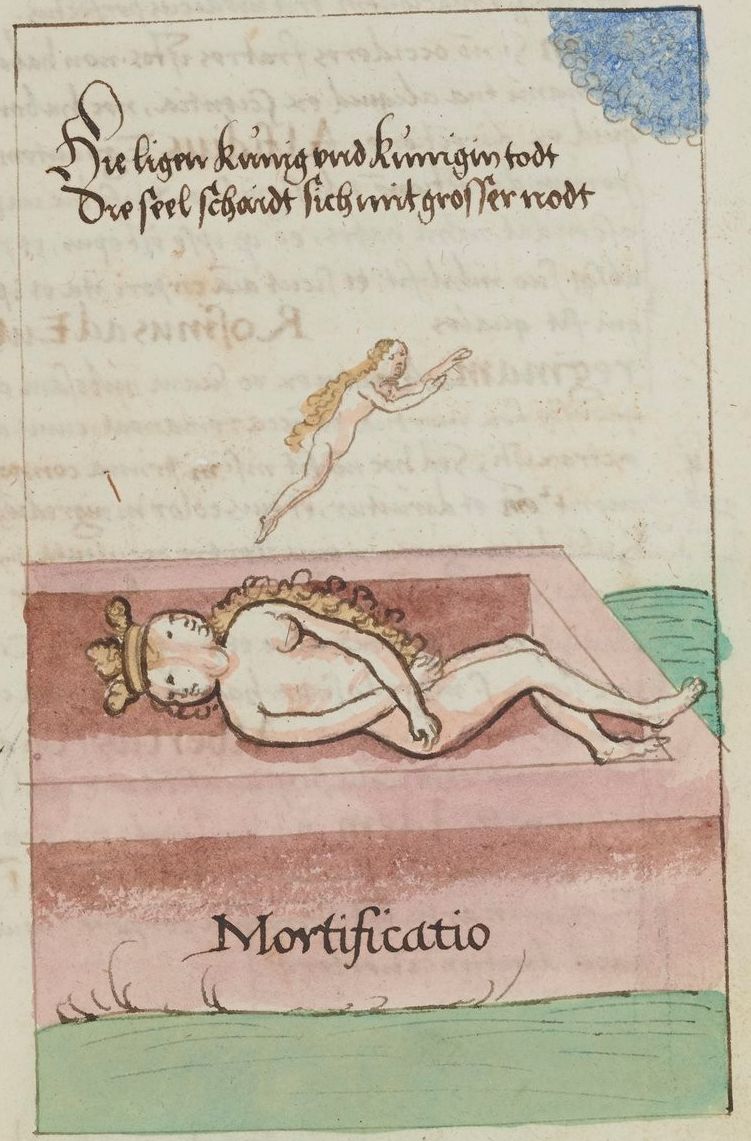 Hie ligen künig vnd künigin todt
Die seel schaidt sich mit grosser nodt
Mortificatio